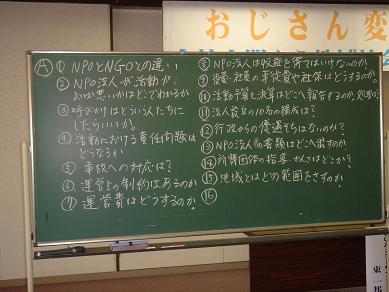 おじさん変
Ⓐ ① NPOとNGOとの違い
② NPO法人が活動が
よいか悪いかはどこでわかるか
③ 呼びかけはどういう人たちに
したらいいか。
④ 活動における責任問題は
どうなるか
⑤ 事故への対応は?
⑥ 運営上の制約はあるのか
⑦ 運営費はどうするのか
⑧ NPO法人は収益を得てはいけないのか
⑨ 役員・社員の事従費や社保はどうするのか。
⑩ 活動予算と決算はどこへ報告するのか
⑪ 法人設立の10名の構成は?
⑫ 行政からの優遇はないのか?
⑬ NPO法人の書類はどこへ出すのか
⑭ 所轄団体の指導 かんさはどこか?
⑮ 地域とはどの範囲をさすのか
⑯
東